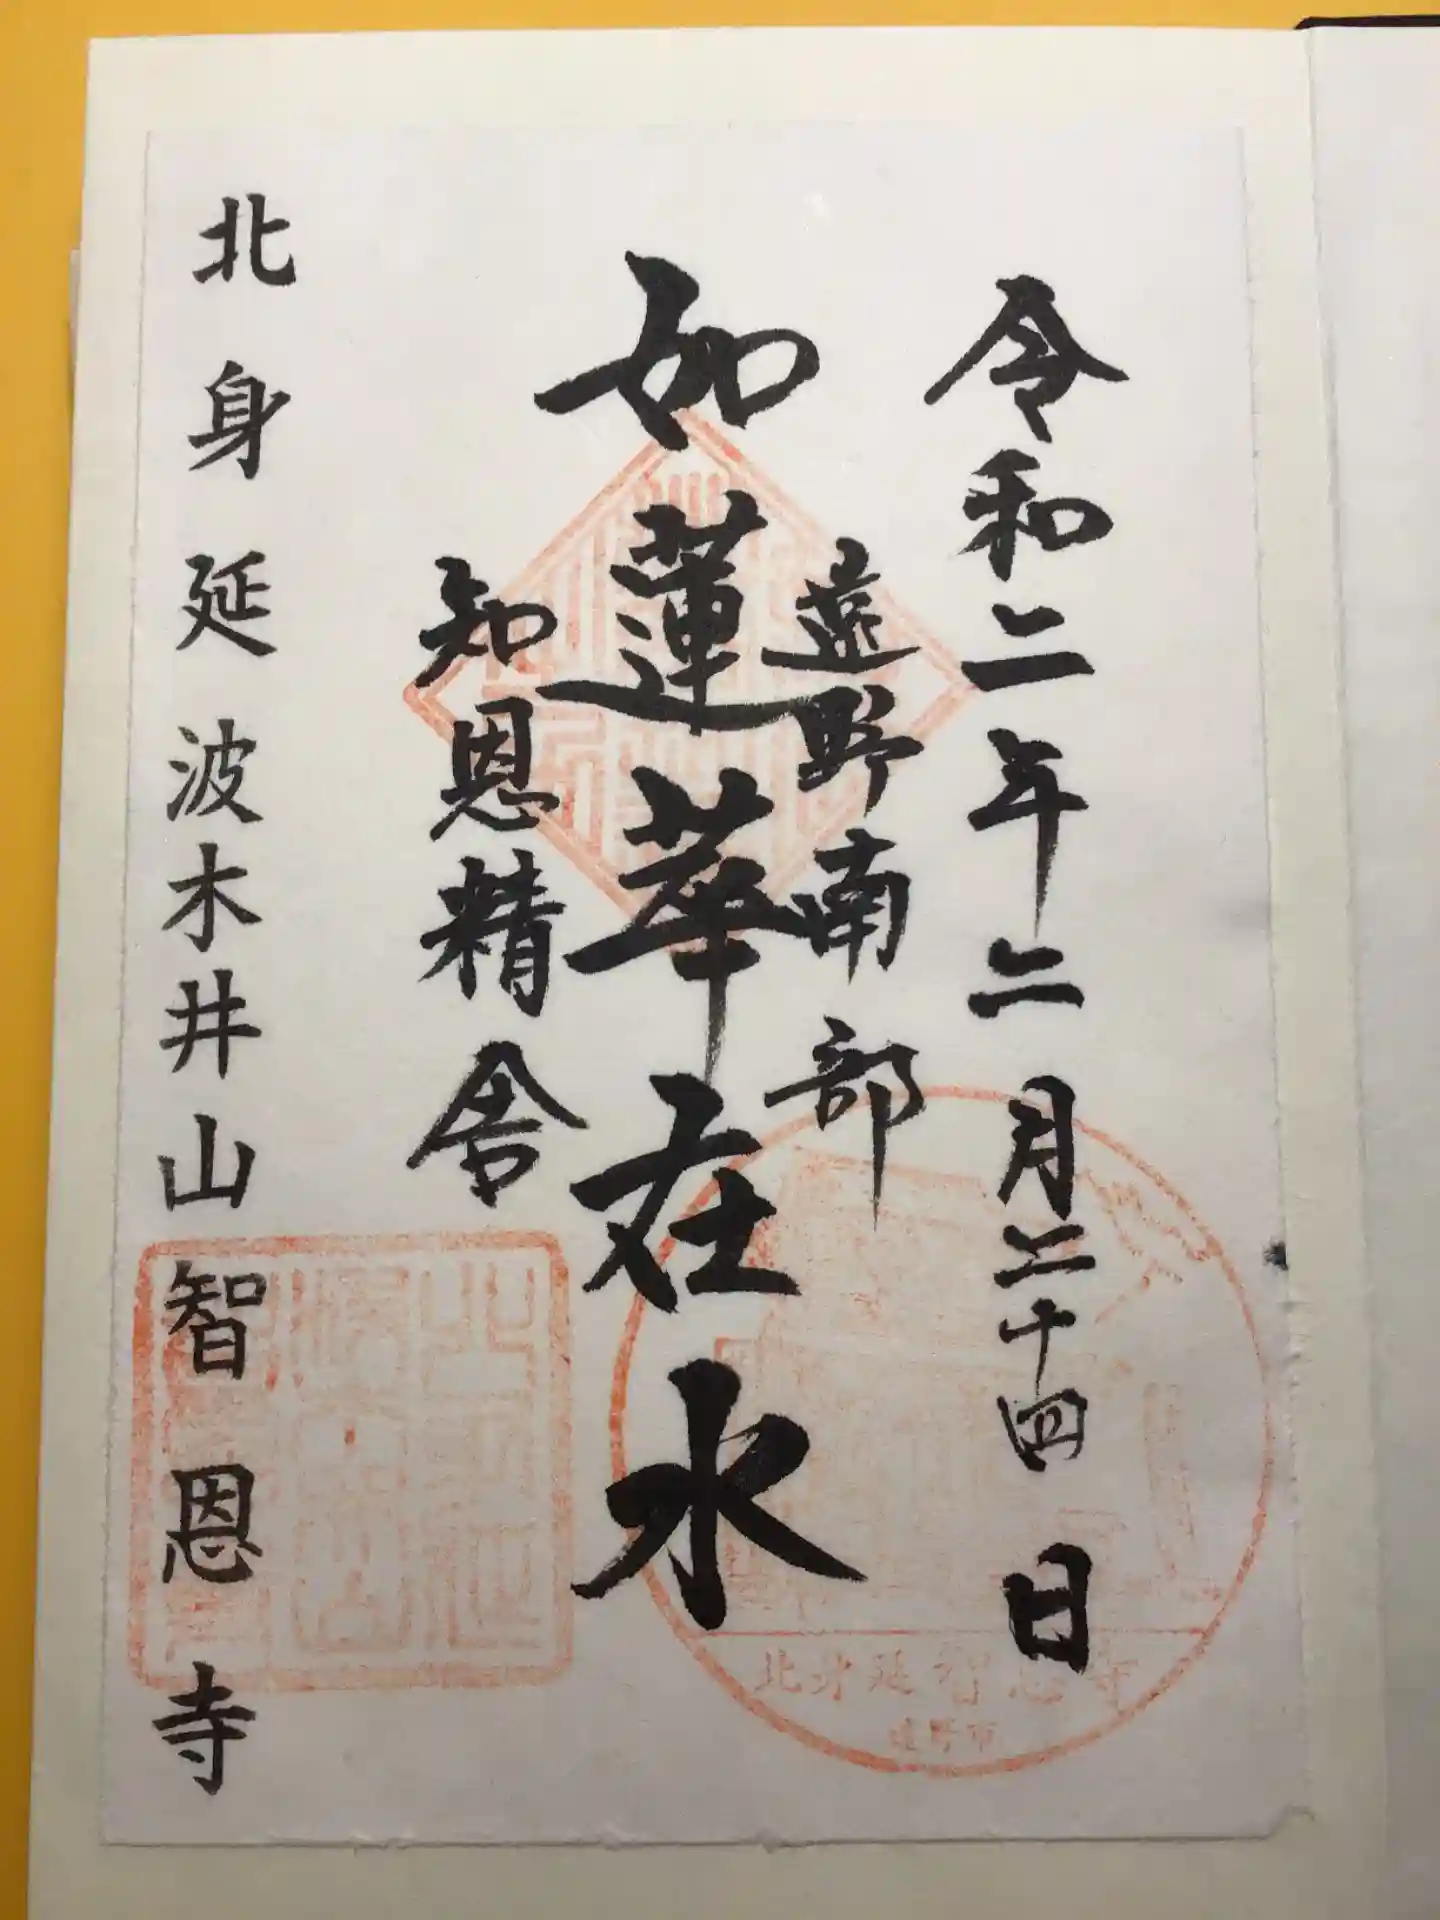 令和二年二月二十四日
遠野南部
如蓮華在水
知恩精舎
北身延波木井山智恩寺
北身延智恩寺
遠野市